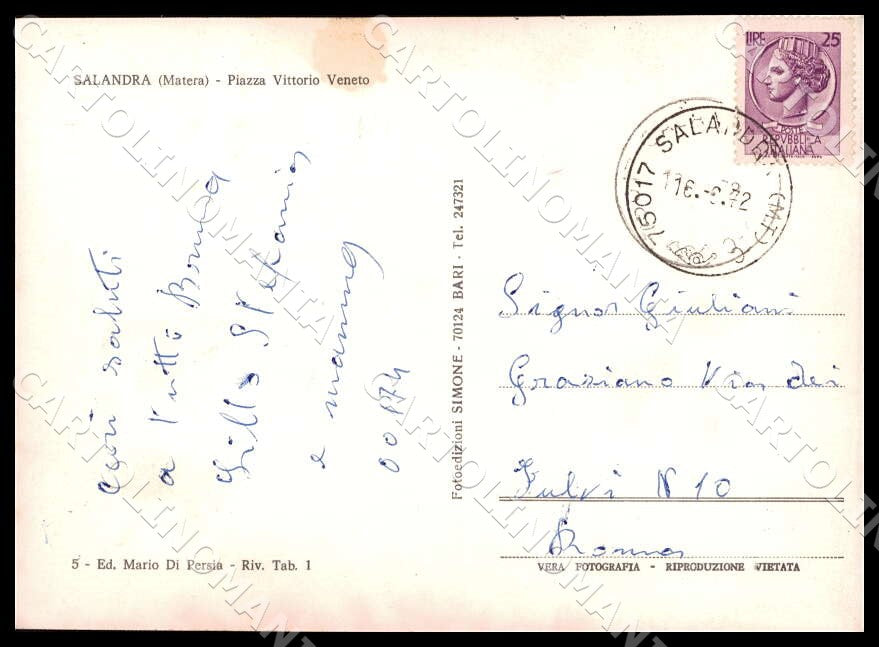 SALANDRA (Matera) - Piazza Vittorio Veneto
LIRE 25
POSTE
REPVBBLICA
ITALIANA
75017 SALANDRA (MT)
cari saluti
a tutti Bruna
Gillo Stefania
e mamma
00174
Fotoedizioni SIMONE - 70124 BARI - Tel. 247321
Signor Giuliani
Graziano Via dei
Fulvi N 10
Roma
5 - Ed. Mario Di Persia - Riv. Tab. 1
VERA FOTOGRAFIA - RIPRODUZIONE VIETATA
CARTOLINOMANIA